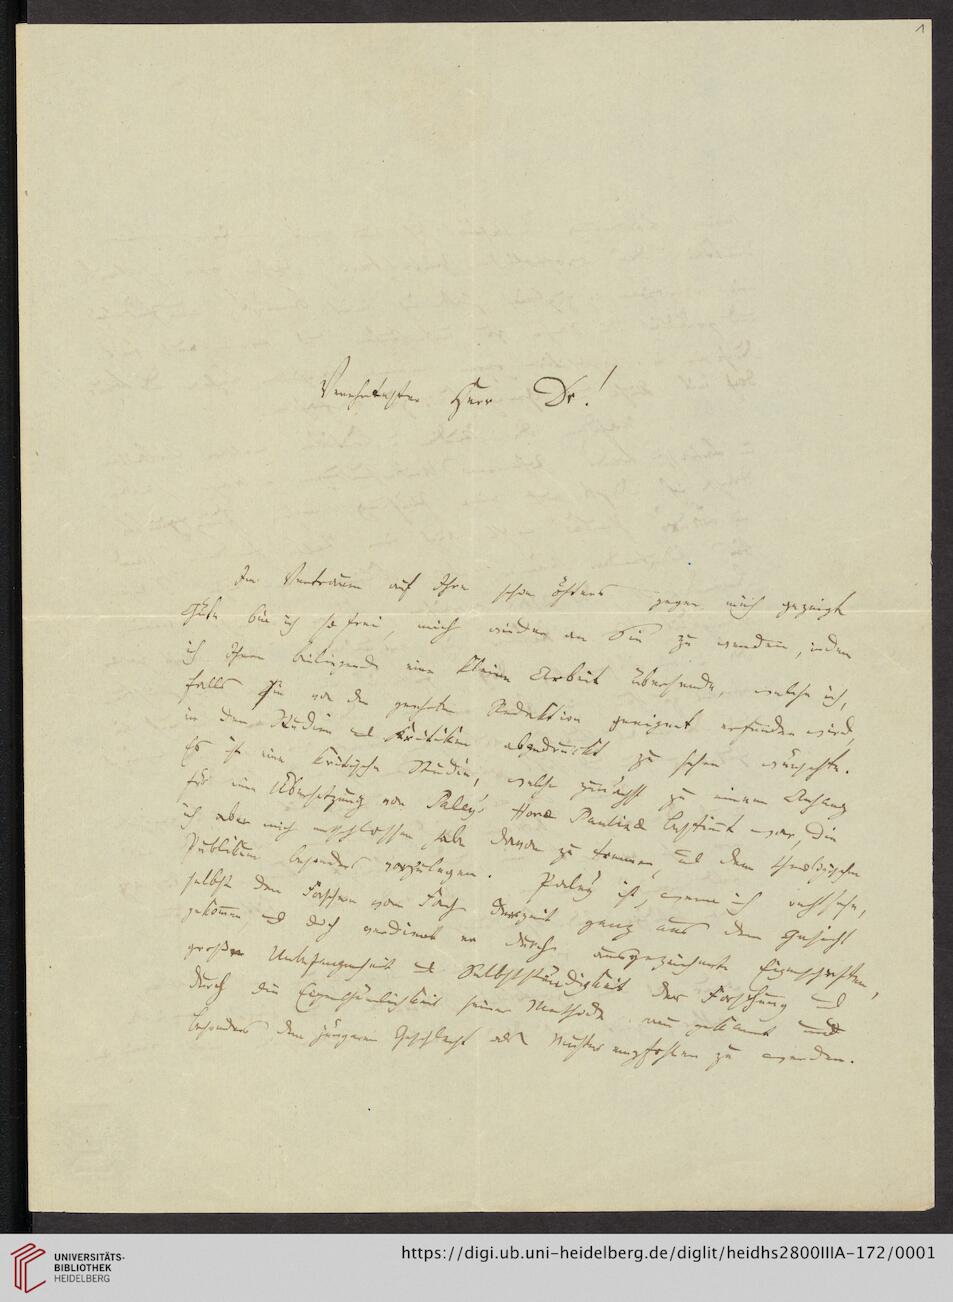 1
Verehrtester Herr Dr!
Im Vertrauen auf Ihre schon öfters gegen mich gezeigte
Güte bin ich so frei, mich wieder an Sie zu wenden, indem
ich Ihnen beiliegende eine kleine Arbeit übersende, welche ich,
falls sie von der geehrten Redaktion geeignet erfunden wird,
in den Studien und Kritiken abgedruckt zu sehen wünschte.
Es ist eine kritische Studie, welche zunächst zu einem Anhang
für eine Übersetzung von Paley's Horae Paulinae bestimmt war, die
ich aber mich entschlossen habe davon zu trennen, und dem theologischen
Publikum besonders vorzulegen. Paley ist, wenn ich recht sehe,
selbst den Forschern vom Fach derzeit ganz aus dem Gesicht
gekommen, und doch verdient er durch ausgezeichnete Eigenschaften,
große Unbefangenheit und Selbstständigkeit der Forschung und
durch die Eigenthümlichkeit seiner Methode neu gekannt und
besonders dem jüngeren Geschlecht als Muster empfohlen zu werden.
UNIVERSITÄTS-
BIBLIOTHEK
HEIDELBERG
https://digi.ub.uni-heidelberg.de/diglit/heidhs2800IIIA-172/0001